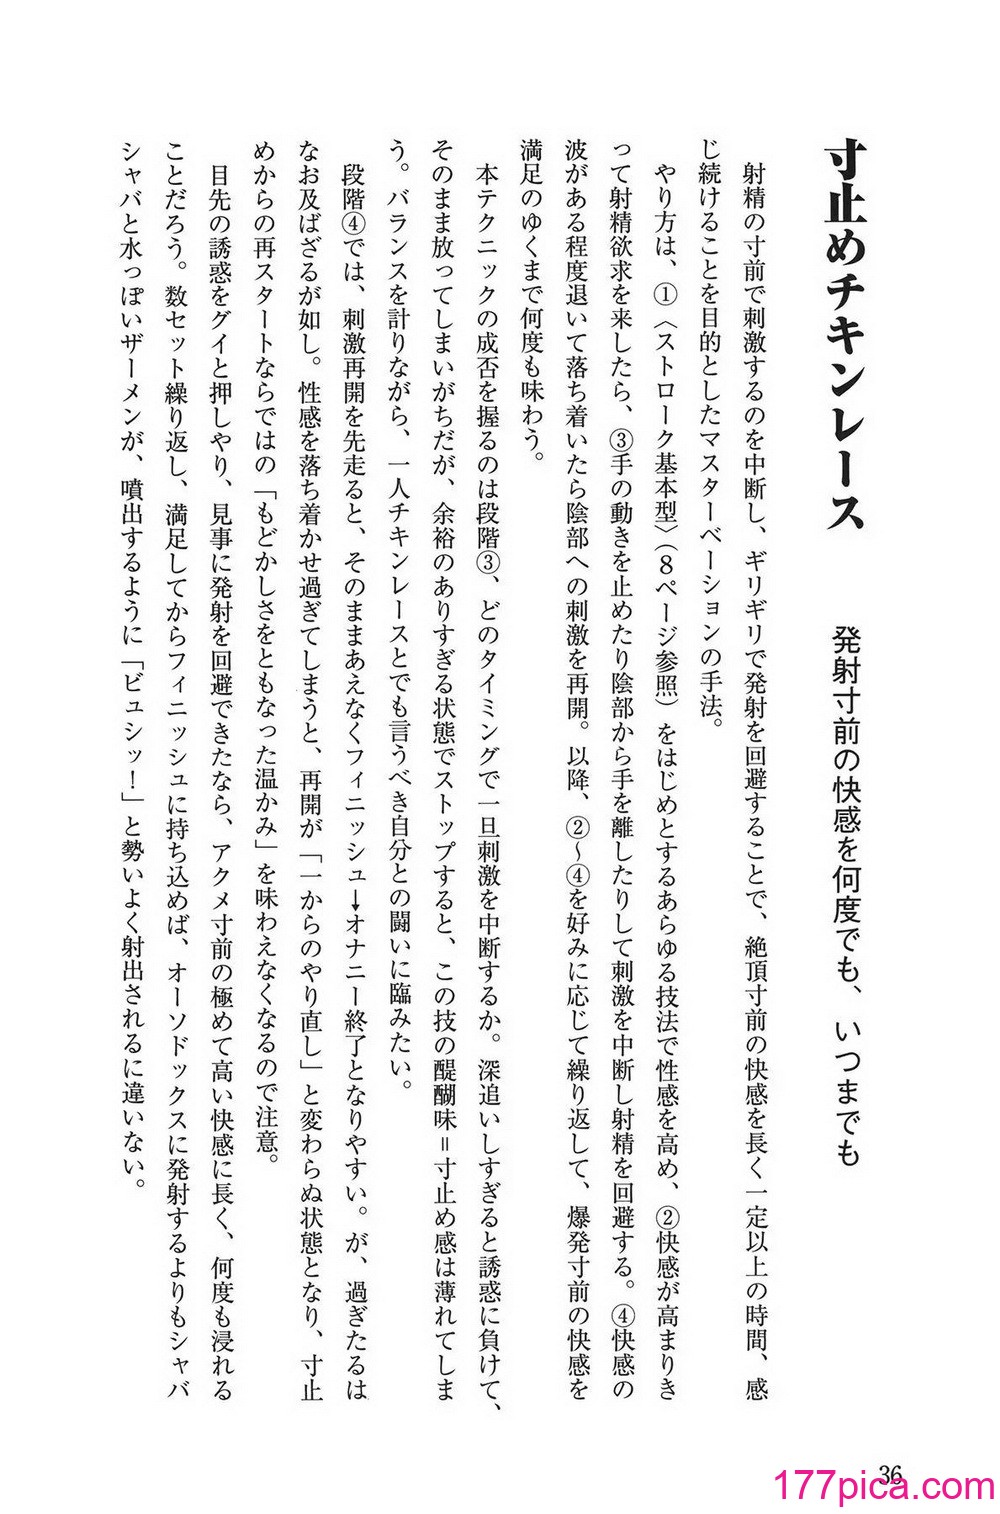 寸止めチキンレース　発射寸前の快感を何度でも、いつまでも
　射精の寸前で刺激するのを中断し、ギリギリで発射を回避することで、絶頂寸前の快感を長く一定以上の時間、感
じ続けることを目的としたマスターベーションの手法。
　やり方は、①〈ストローク基本型〉（8ページ参照）をはじめとするあらゆる技法で性感を高め、②快感が高まりき
って射精欲求を来したら、③手の動きを止めたり陰部から手を離したりして刺激を中断し射精を回避する。④快感の
波がある程度退いて落ち着いたら陰部への刺激を再開。以降、②〜④を好みに応じて繰り返して、爆発寸前の快感を
満足のゆくまで何度も味わう。
　本テクニックの成否を握るのは段階③、どのタイミングで一旦刺激を中断するか。深追いしすぎると誘惑に負けて、
そのまま放ってしまいがちだが、余裕のありすぎる状態でストップすると、この技の醍醐味＝寸止め感は薄れてしま
う。バランスを計りながら、一人チキンレースとでも言うべき自分との闘いに臨みたい。
　段階④では、刺激再開を先走ると、そのままあえなくフィニッシュ→オナニー終了となりやすい。が、過ぎたるは
なお及ばざるが如し。性感を落ち着かせ過ぎてしまうと、再開が「一からのやり直し」と変わらぬ状態となり、寸止
めからの再スタートならではの「もどかしさをともなった温かみ」を味わえなくなるので注意。
　目先の誘惑をグイと押しやり、見事に発射を回避できたなら、アクメ寸前の極めて高い快感に長く、何度も浸れる
ことだろう。数セット繰り返し、満足してからフィニッシュに持ち込めば、オーソドックスに発射するよりもシャバ
シャバと水っぽいザーメンが、噴出するように「ビュシッ！」と勢いよく射出されるに違いない。
36
177pica.com